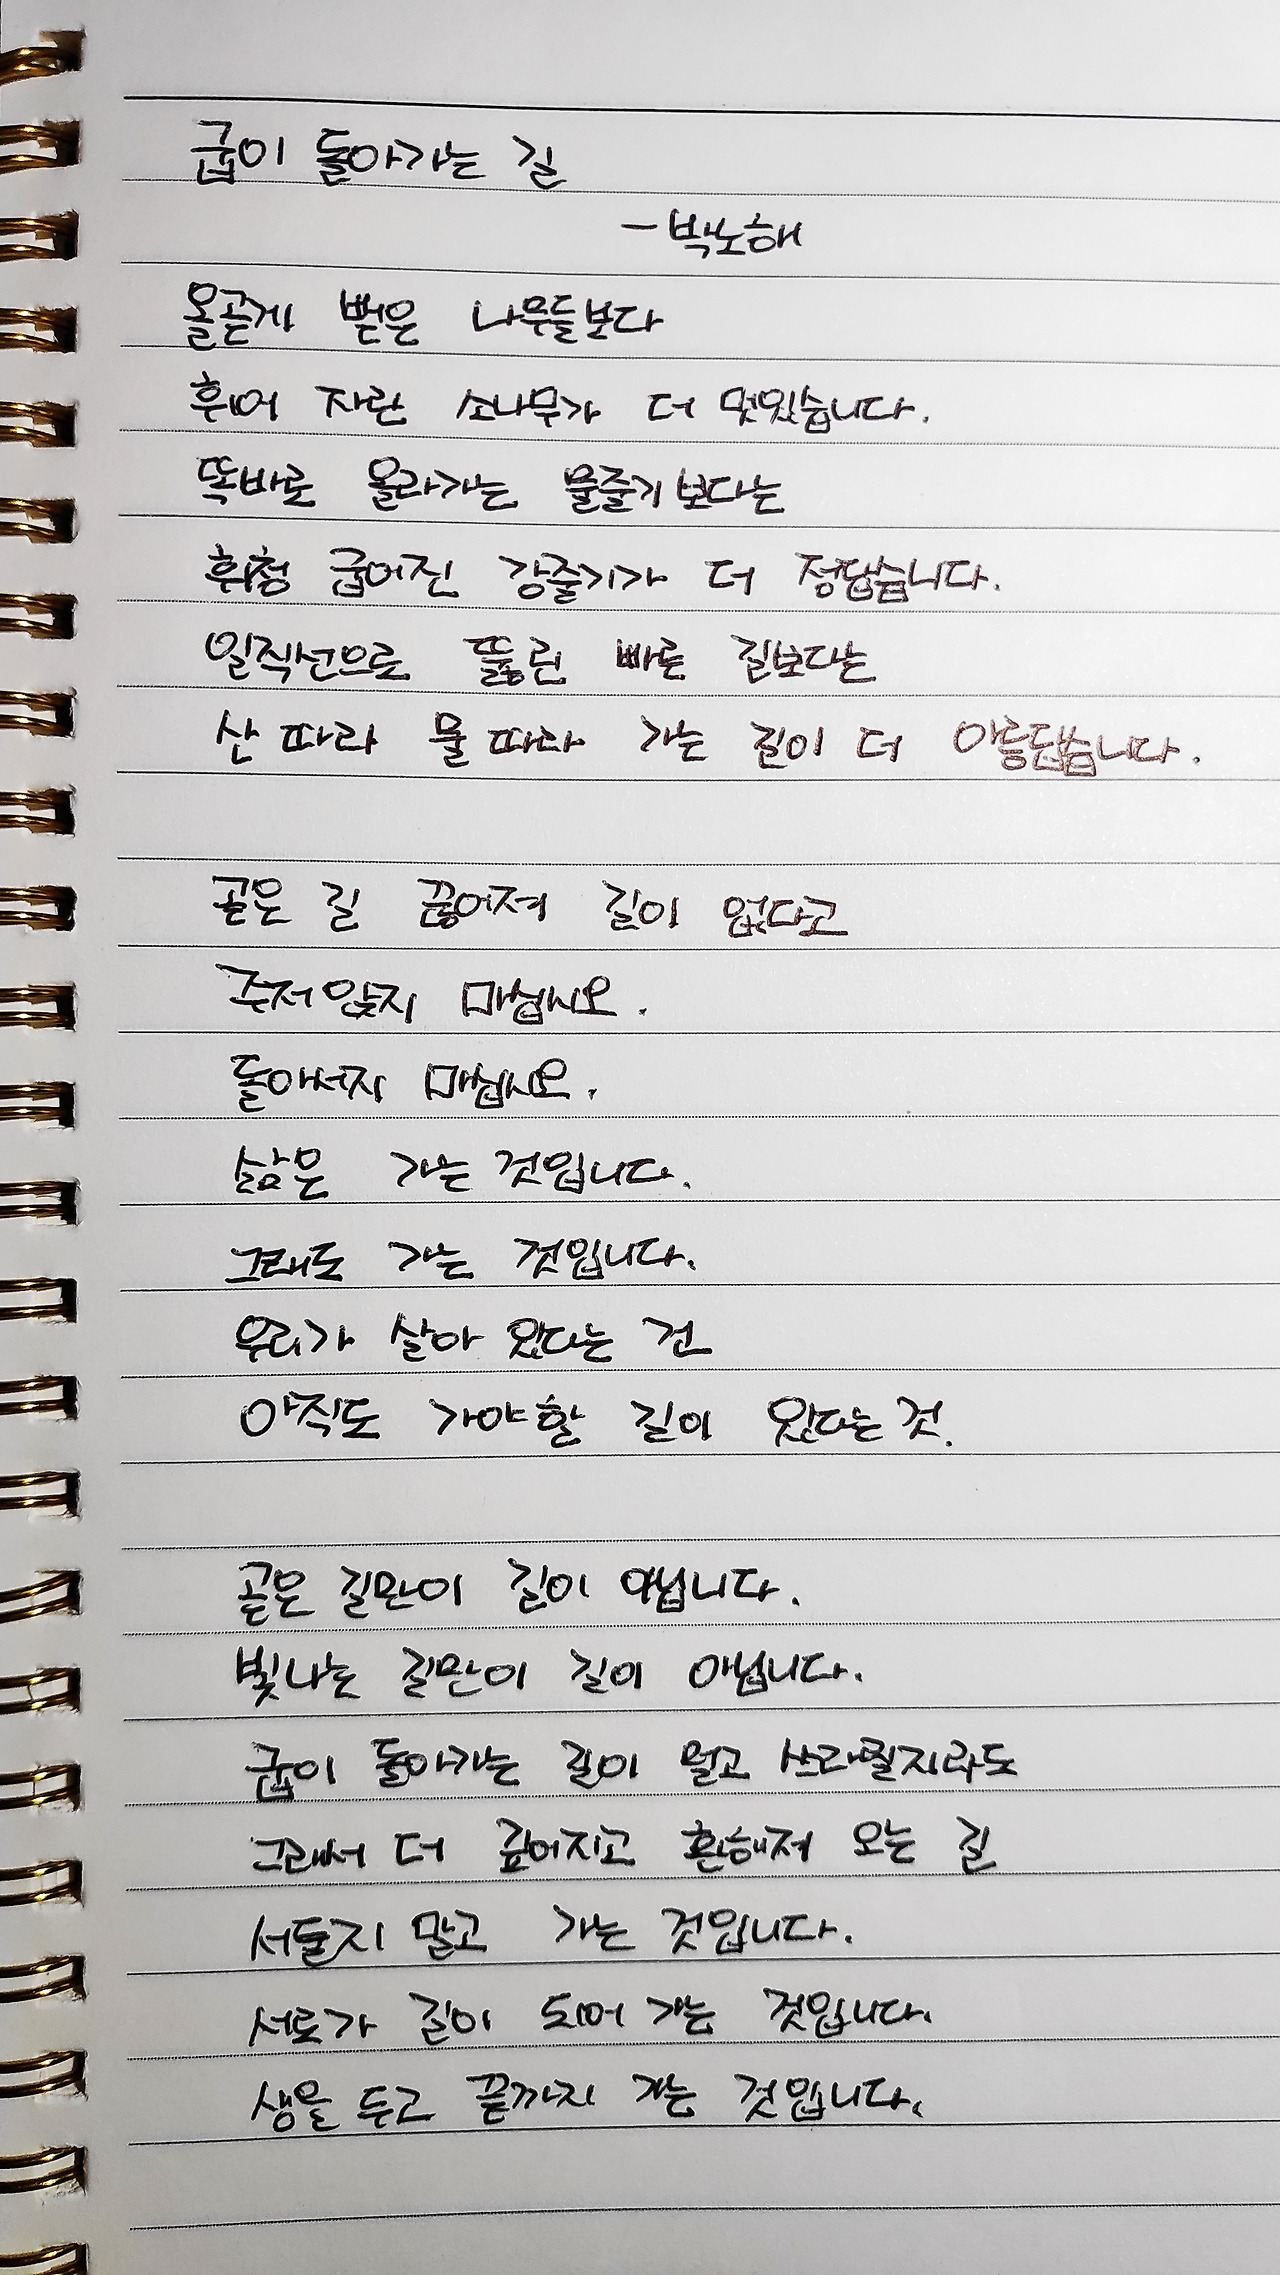 굽이 돌아가는 길
-박노해
올곧게 뻗은 나무들보다
휘어 자란 소나무가 더 멋있습니다.
똑바로 올라가는 물줄기보다는
휘청 굽어진 강줄기가 더 정답습니다.
일직선으로 뚫린 빠른 길보다는
산 따라 물 따라 가는 길이 더 아름답습니다.
곧은 길 끊어져 길이 없다고
주저앉지 마십시오.
돌아서지 마십시오.
삶은 가는 것입니다.
그래도 가는 것입니다.
우리가 살아 있다는 건
아직도 가야할 길이 있다는 것.
곧은 길만이 길이 아닙니다.
빛나는 길만이 길이 아닙니다.
굽이 돌아가는 길이 멀고 쓰라릴지라도
그래서 더 깊어지고 환해져 오는 길
서둘지 말고 가는 것입니다.
서로가 길이 되어 가는 것입니다.
생을 두고 끝까지 가는 것입니다.